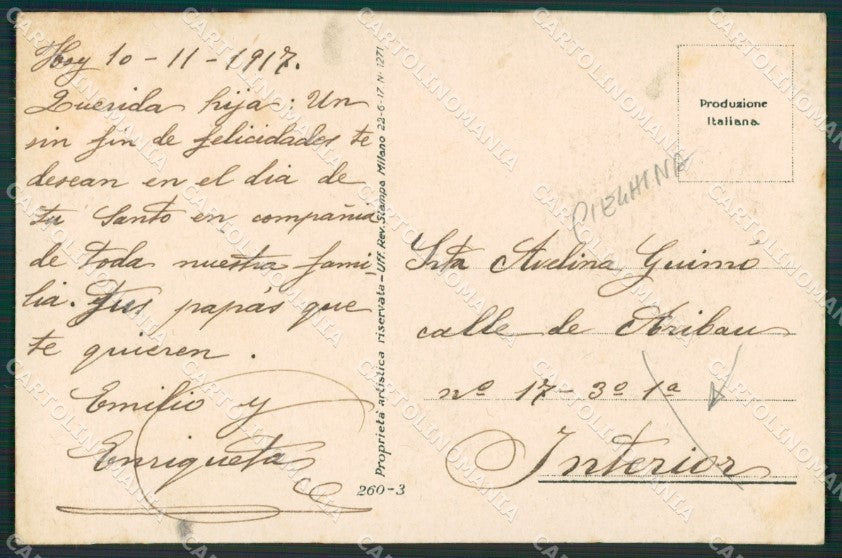 Hoy 10-11-1917.
Querida hija: Un
sin fin de felicidades te
desean en el dia de
tu Santo en compañia
de toda nuestra fami-
lia. Tus papás que
te quieren.
Emilio y
Enriqueta
Proprietà artistica riservata - Uff. Rev. Stampa Milano 22-6-17. N. 1271
260-3
Produzione
Italiana.
Srta Avelina Guimó
calle de Aribau
nº 17-3º 1ª
Interior
CARTOLINOMANIA